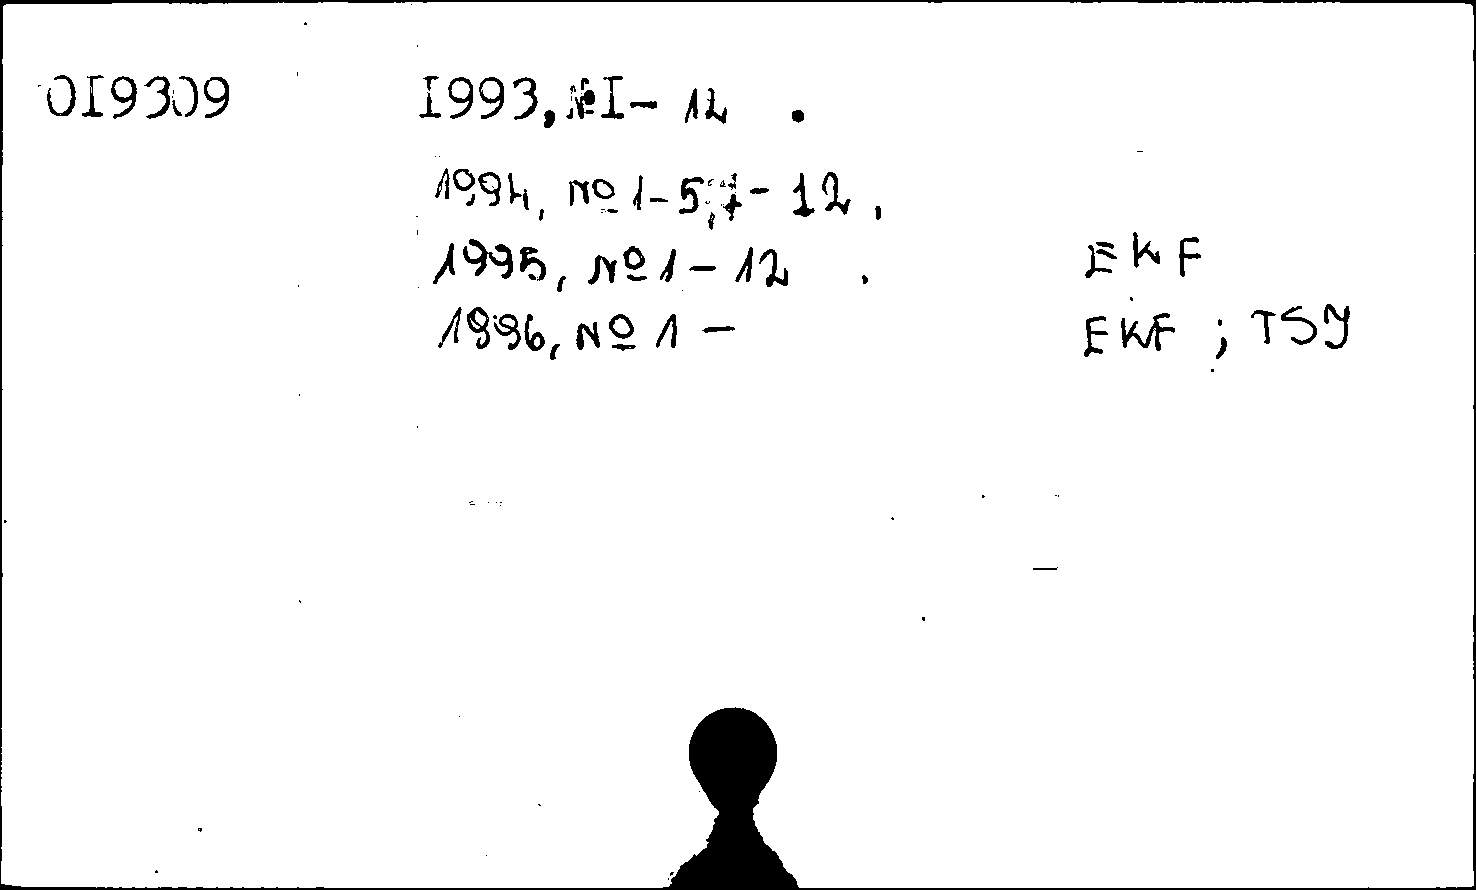 OI9309 I993, №I- 12 .
1994, №1-5,7- 12 .
1995, №1-12 . EKF
1996, №1 - EKF ; TSY